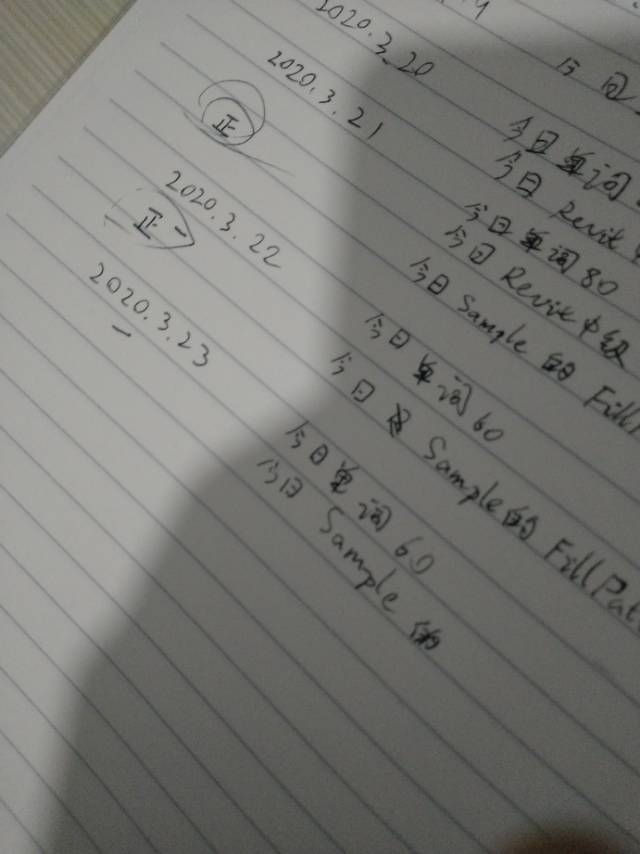 2020.3.20
今日
2020.3.21
正
今日单词
今日 Revit
2020.3.22
正一
今日单词80
今日 Revit中级
今日 Sample 的 Fill
2020.3.23
一
今日单词60
今日 Sample的 FillPat
今日单词60
今日 Sample 的